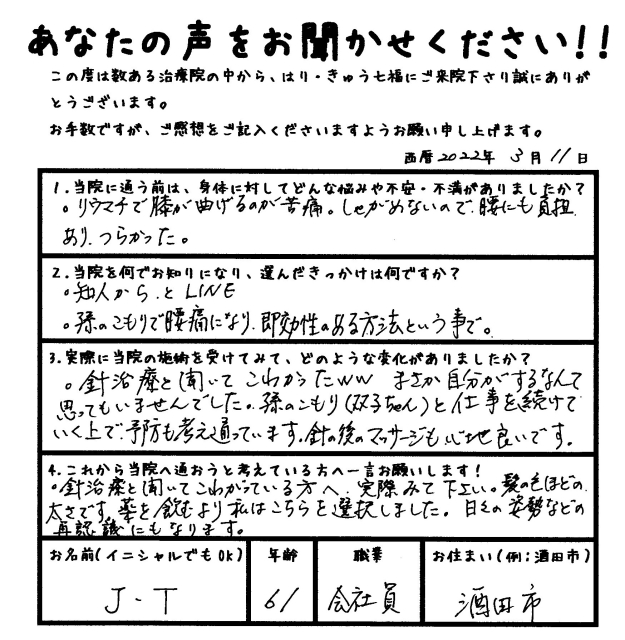 あなたの声をお聞かせください!!
この度は数ある治療院の中から、はり・きゅう七福にご来院下さり誠にありが
とうございます。
お手数ですが、ご感想をご記入くださいますようお願い申し上げます。
西暦2022年 3月11日
1.当院に通う前は、身体に対してどんな悩みや不安・不満がありましたか?
。リウマチで膝が曲げるのが苦痛。しゃがめないので、腰にも負担
あり、つらかった。
2.当院を何でお知りになり、選んだきっかけは何ですか?
。知人から、と LINE
。孫のこもりで腰痛になり、即効性のある方法という事で。
3.実際に当院の施術を受けてみて、どのような変化がありましたか?
。針治療と聞いて こわかったww まさか自分がするなんて
思ってもいませんでした。孫のこもり(双子ちゃん)と仕事を続けて
いく上で、予防も考え通っています。針の後のマッサージも心地良いです。
4.これから当院へ通おうと考えている方へ一言お願いします!
。針治療と聞いてこわがっている方へ、実際みて下さい。髪の毛ほどの
太さです。薬を飲むより私はこちらを選択しました。日々の姿勢などの
再認識にもなります。
お名前(イニシャルでもOK) 年齢 職業 お住まい(例:酒田市)
J・T 61 会社員 酒田市